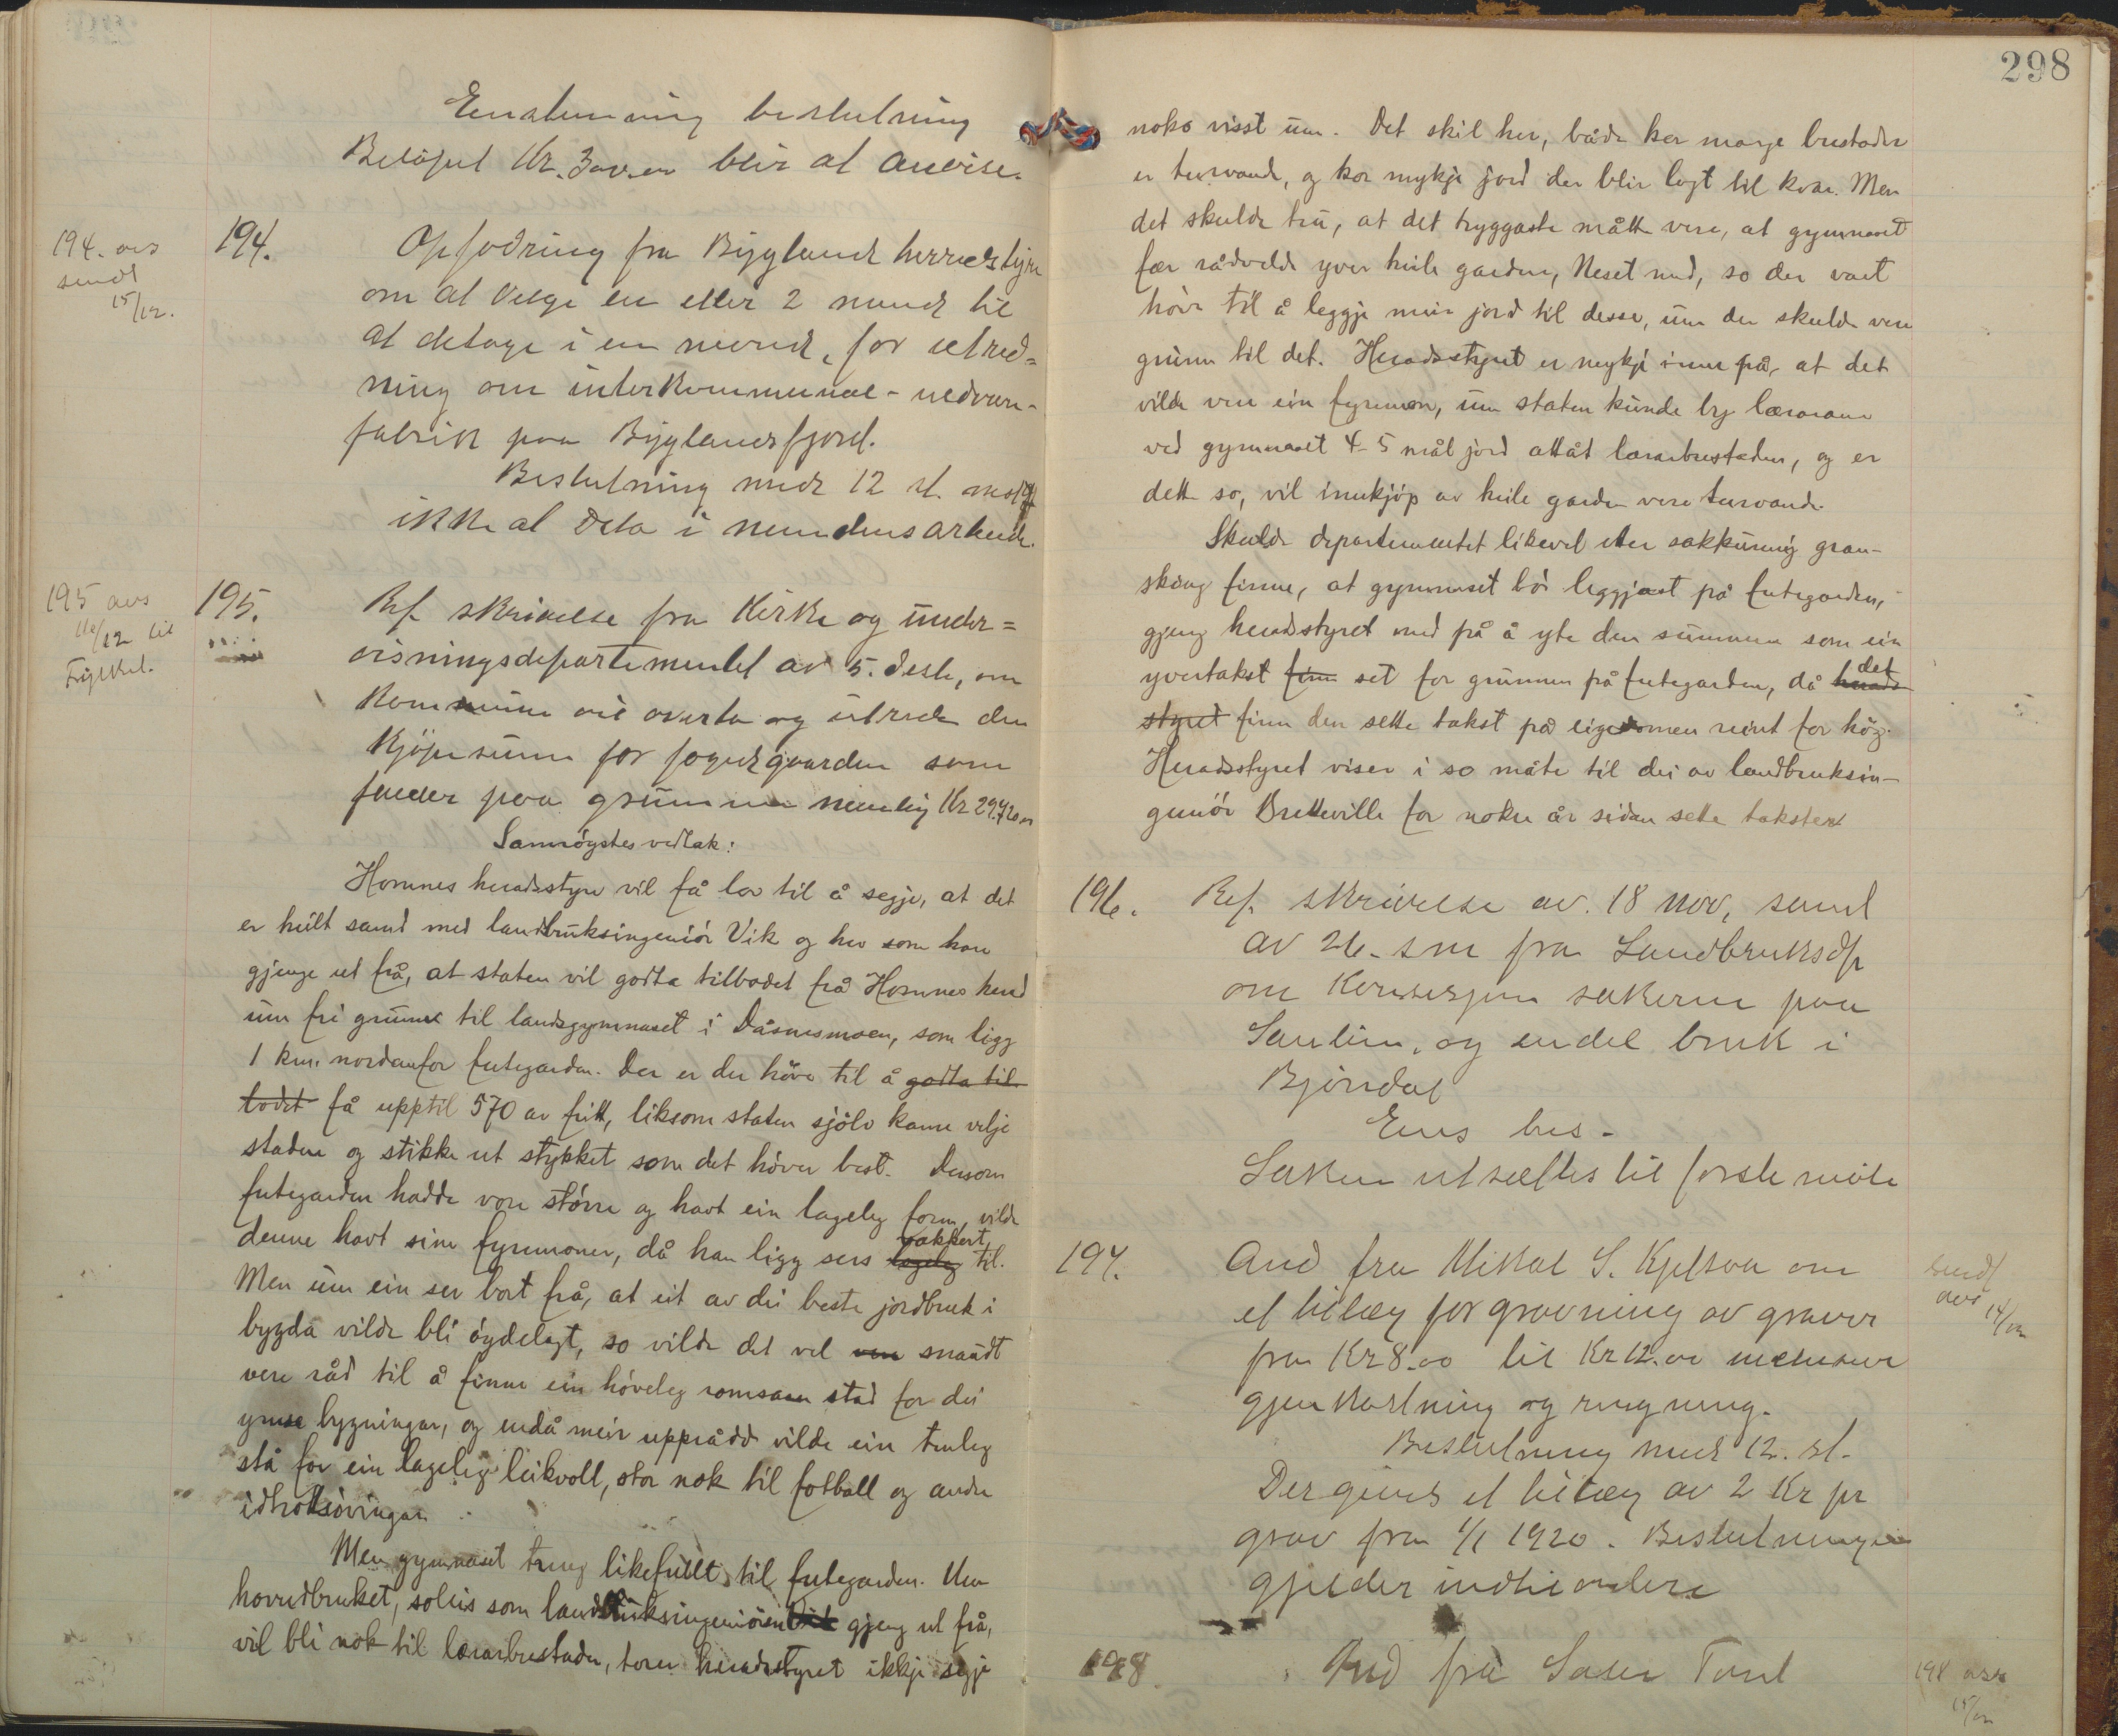 298
Enstemmig beslutning
Beløpet Kr. blir at anvise.
194. avs
sendt
15/12.
194. Opfodring fra Bygland herredstyre
om at velge en eller 2 mend til
at deltage i en nevnd, for utred=
ning om interkommunal-uldvare-
fabrik paa Byglandsfjord.
Beslutning med 12 st. mot
ikke at delta i nemndens arbeide.
195 avs
16/12 til
Fylket.
195. Ref. skrivelse fra Kirke og under=
visningsdepartementet av 5. dse, om
Kommune vil overta og utrede den
Kjøpesum for fogedgaarden som
falder paa grunnen nemlig Kr 29.720.00
Samrøystes vedtak:
Hornnes heradsstyre vil få lov til å segje, at det
er heilt samd med landbruksingeniør Vik og her som han
gjenge ut frå, at staten vil godta tilbodet frå Hornnes herad
um fri grunn til landsgymnaset i Dåsnesmoen, som ligg
1 km. nordanfor futegarden. Der er der høve til å godta til-
bodet få upptil 570 ar fritt, liksom staten sjølv kann velje
staden og stikke ut stykket som det høver best. Dersom
futegarden hadde vore større og havt ein lageleg form, vilde
denne havt sine fyremoner, då han ligg sers lageleg vakkert til.
Men um ein ser bort frå, at eit av dei beste jordbruk i
bygda vilde bli øydelagt, so vilde det vel vere snaudt
vere råd til å finne ein høveleg romsam stad for dei
ymse bygningar, og endå meir upprådd vilde ein truleg
stå for ein lageleg leikvoll, stor nok til fotball og andre
idrottsøvingar.
Men gymnaset treng likefullt til futegarden. Um
hovudbruket, soleis som landbruksingeniøren Vik gjeng ut frå,
vil bli nok til lærarbustader, torer heradsstyret ikkje segje
noko visst um. Det skil her, både kor mange bustader
er turvande, og kor mykje jord der blir lagt til kvar. Men
det skulde tru, at det tryggaste måtte vere, at gymnaset
fær rådvelde yver heile garden, Neset med, so der vart
høve til å leggje meir jord til desse, um der skulde vere
grunn til det. Heradsstyret er mykje inne på, at det
vilde vere ein fyremon, um staten kunde by lærarane
ved gymnaset 4-5 mål jord attåt lærarbustaden, og er
dette so, vil innkjøp av heile garden vere turvande.
Skulde departementet likevel etter sakkunnig gran-
sking finne, at gymnaset bør leggjast på futegarden,
gjeng heradsstyret med på å yte den summen som ein
yvertakst finn set for grunnen på futegarden, då herads- det
styret finn den sette takst på eigedomen reint for høg.
Heradsstyret viser i so måte til dei av landbruksin-
geniør Bretteville for nokre år sidan sette takster
196. Ref. skrivelse av. 18 nov, samt
av 26. s.m fra Landbruksdp
om Konsesjons sakerne paa
og endel bruk i
Bjørndal
Ens bes.
Saken utsættes til første møte
197. And fra Mikal S. Kjetsaa om
et tillæg for gravning av graver
fra Kr 8.00 til Kr 12.00 inclusive
gjenkastning og ringning.
Beslutning med 12. st.
Der gives et tillæg av 2 Kr pr
grav fra 1/1 1920. Beslutningen
gjelder indtil videre
sendt
avs 14/12
198. And frå
198 avs
15/12